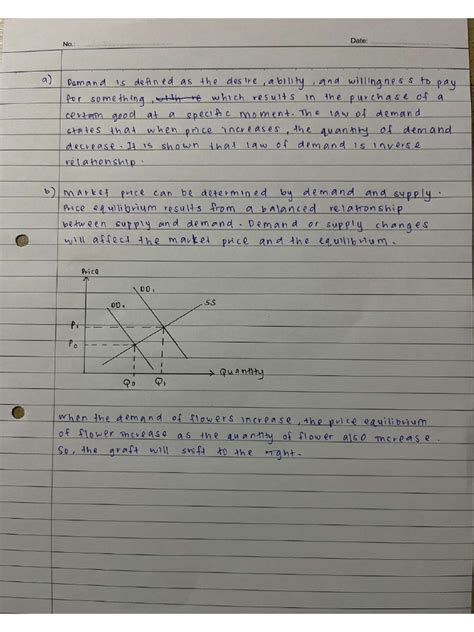 No.:
Date:
a) Demand is defined as the desire, ability, and willingness to pay
for something, with re which results in the purchase of a
certain good at a specific moment. The law of demand
states that when price increases, the quantity of demand
decrease. It is shown that law of demand is inverse
relationship.
b) Market price can be determined by demand and supply.
Price equilibrium results from a balanced relationship
between supply and demand. Demand or supply changes
will affect the market price and the equilibrium.
Price
DD1
DD0
SS
P1
P0
Quantity
Q0 Q1
When the demand of flowers increase, the price equilibrium
of flower increase as the quantity of flower also increase.
So, the graft will shift to the right.